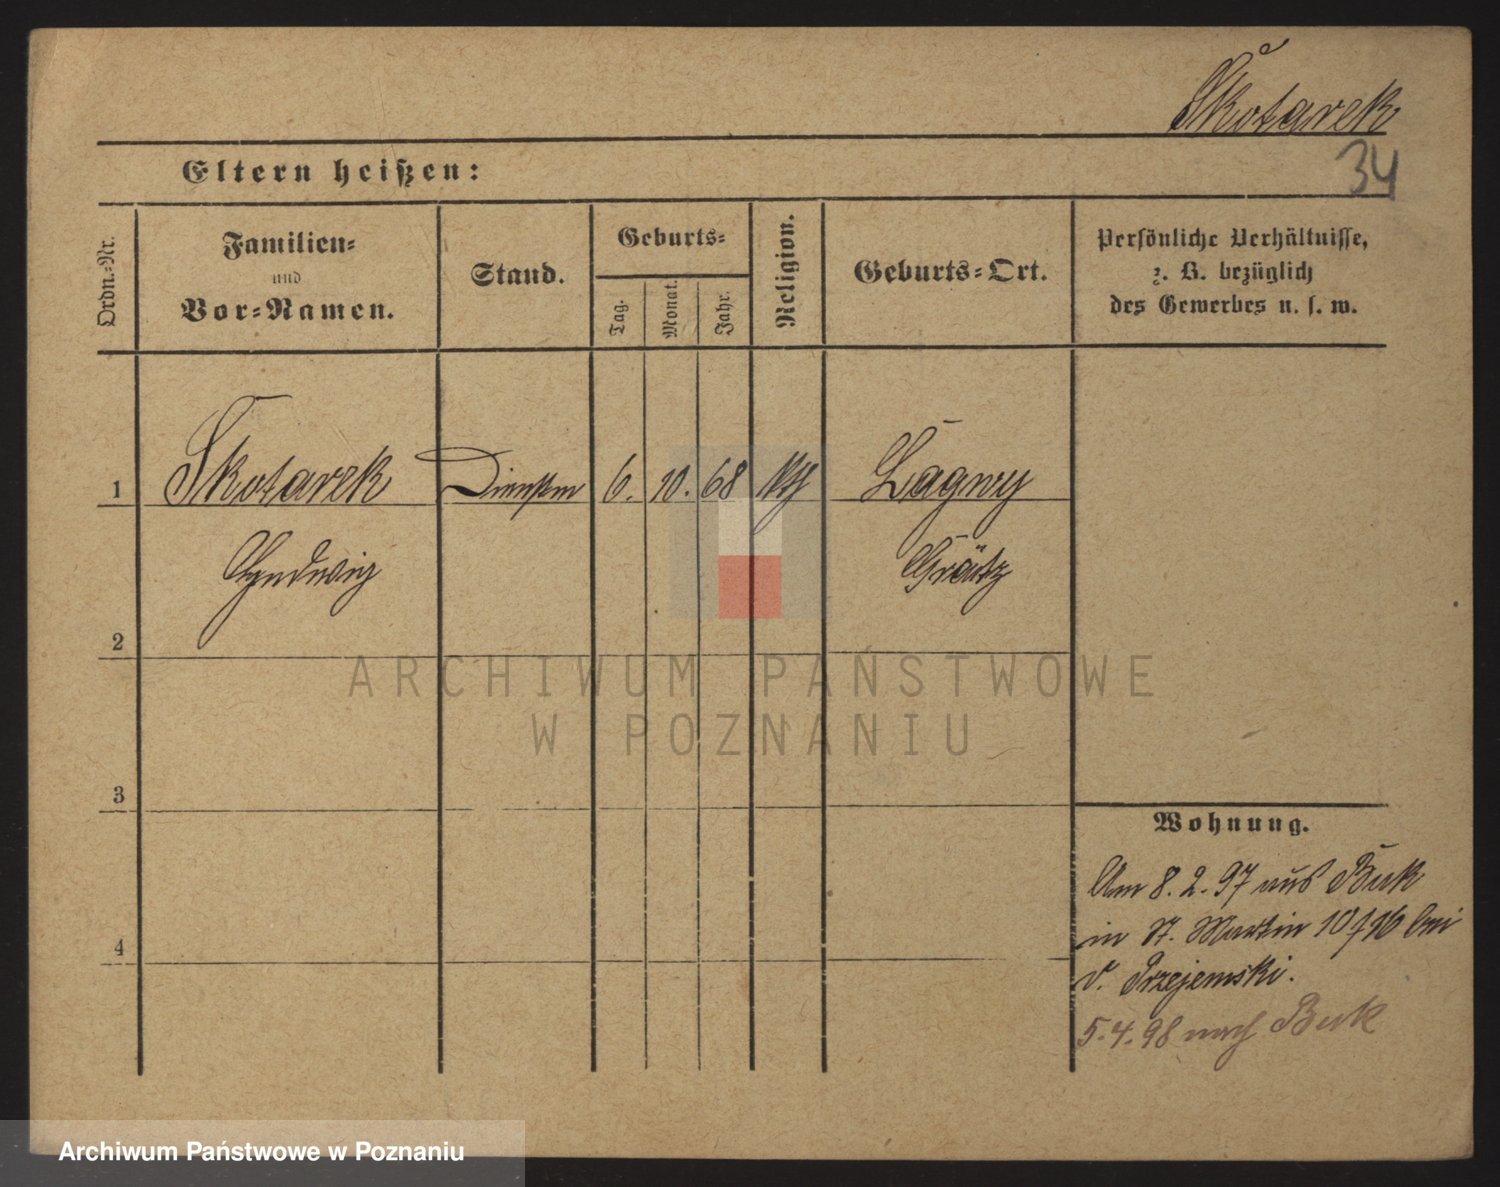 Skotarek
34
Eltern heißen:
Ordn.-Nr.
Familien-
und
Vor-Namen.
Stand.
Geburts-
Tag.
Monat.
Jahr.
Religion.
Geburts-Ort.
Persönliche Verhältnisse,
z. B. bezüglich
des Gewerbes u. s. w.
1 Skotarek 6. 10. 68 kth
Grätz
2
3
4
Wohnung.
Am 8.2.97 aus Buk
in St. Martin 10 bei
v. Przejemski.
5.4.98 nach Buk
ARCHIWUM PAŃSTWOWE
W POZNANIU
Archiwum Państwowe w Poznaniu